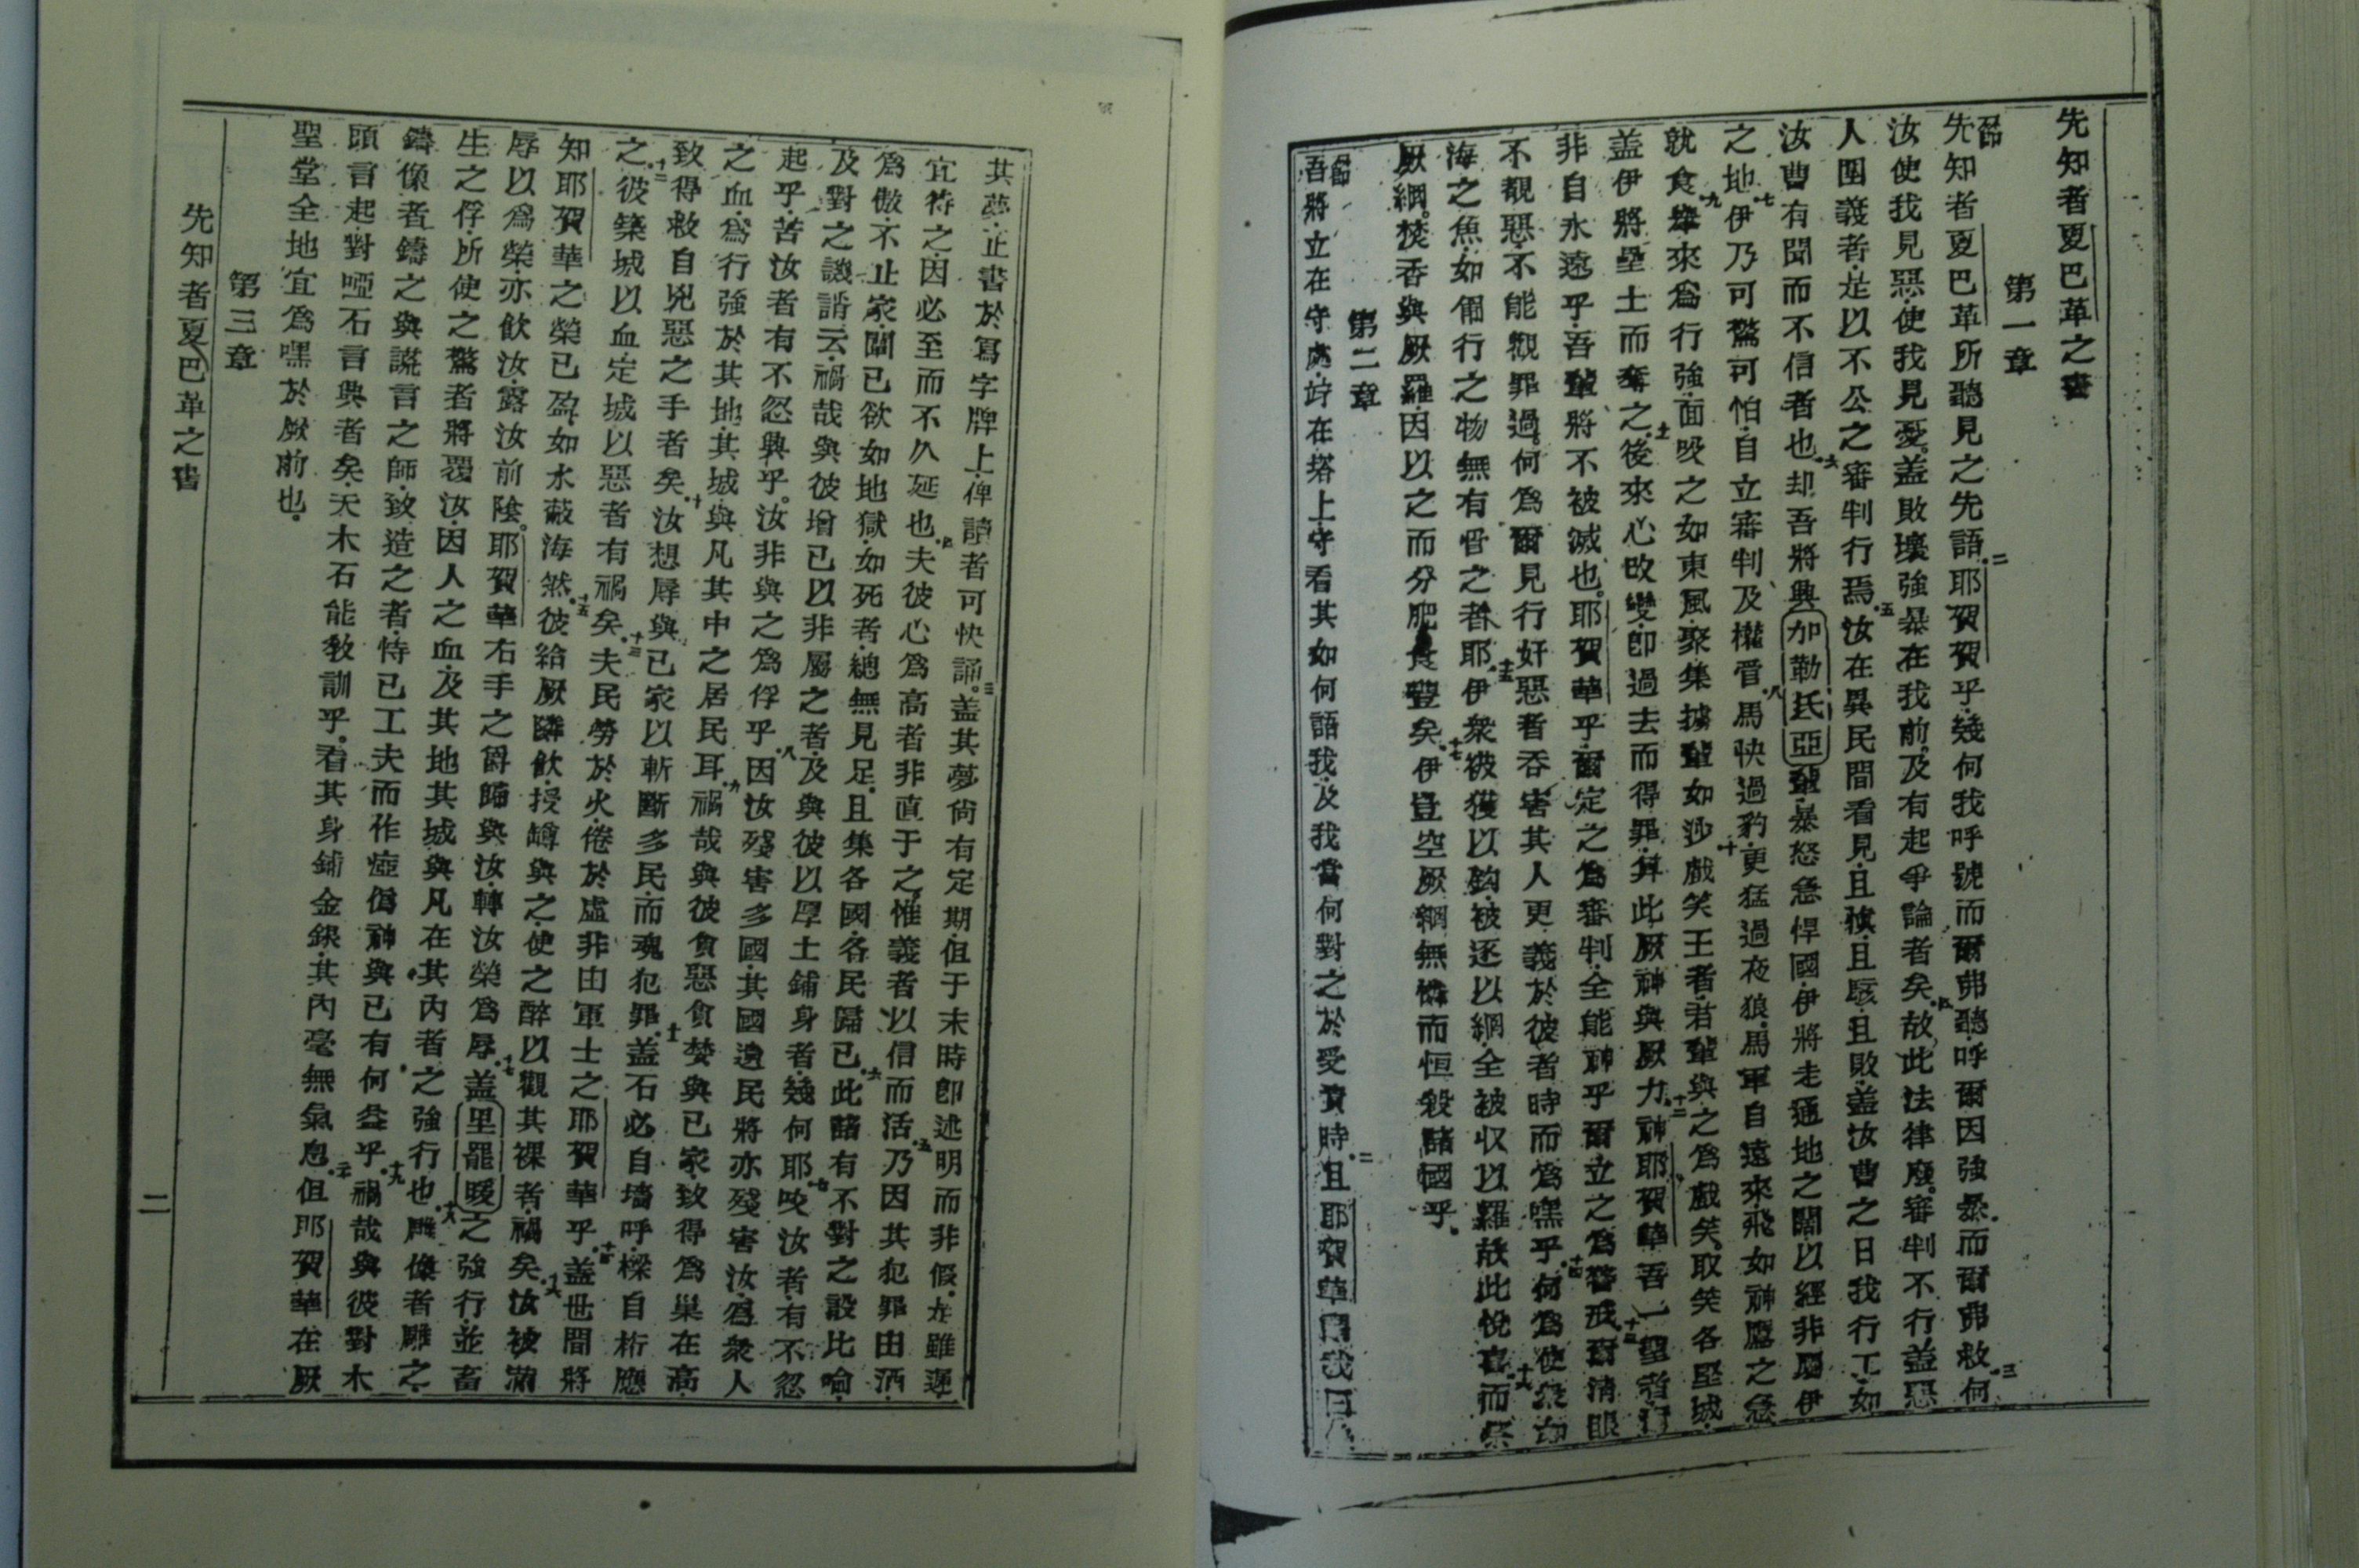 先知者夏巴革之書
第一章
節
先知者夏巴革所聽見之先語二耶賀華乎幾何我呼號而爾弗聽呼爾因強暴而爾弗救三何
汝使我見惡使我見憂蓋敗壞強暴在我前及有起爭論者矣四故此法律廢審判不行蓋惡
人圍義者是以不公之審判行焉五汝在異民間看見且 且駭且敗蓋汝曹之日我行工如
汝曹有聞而不信者也六却吾將興加勒氐亞輩暴怒急悍國伊將走通地之闊以經非屬伊
之地七伊乃可驚可怕自立審判及權 八馬快過豹更猛過夜狼馬軍自遠來飛如神鷹之急
就食九舉來為行強面吸之如東風聚集擄輩如沙十戲笑王者君輩與之為戲笑取笑各堅城
蓋伊將壘土而奪之十一後來心改變即過去而得罪算此厥神與厥力十二神耶賀華吾一聖者
非自永遠乎吾輩將不被滅也耶賀華乎爾定之為審判全能神乎爾立之為警戒十三爾清眼
不覩惡不能觀罪過何為爾見行奸惡者吞害其人更義於彼者時而為嘿乎十四何為使眾如
海之魚如匍行之物無有 之者耶十五伊眾彼獲以鈎被逐以網全被收以羅故此悅喜而十六祭
厥網焚香與厥羅因以之而分肥食豐矣十七伊豈空厥網無憐而恒殺諸國乎
第二章
節
吾將立在守處 在塔上守看其如何語我及我當何對之於受責時二且耶賀華 我曰
其夢止書於寫字牌上俾讀者可快誦三蓋其夢尚有定期但于末時即述明而非假 雖遲
宜待之因必至而不久延也四夫彼心為高者非直于之惟義者以信而活五乃因其犯罪由酒
為傲不止家闊己欲如地獄如死者總無見足且集各國各民歸己六此諸有不對之設比喻
及對之譏誚云禍哉與彼增己以非屬之者及與彼以厚土鋪身者幾何耶七咬汝者有不忽
起乎苦汝者有不忽興乎汝非與之為俘乎八因汝殘害多國其國遺民將亦殘害汝為眾人
之血為行強於其地其城與凡其中之居民耳九禍哉與彼貪惡貪婪與己家致得為巢在高
致得救自兇惡之手者矣十汝想辱與己家以斬斷多民而魂犯罪十一蓋石必自墻呼樑自桁應
之十二彼築城以血定城以惡者有禍矣十三夫民勞於火倦於虛非由軍士之耶賀華乎十四蓋世間將
知耶賀華之榮已盈如水蔽海然十五彼給厥隣飲授罇與之使之醉以觀其裸者禍矣十六汝被滿
辱以為榮亦飲汝露汝前陰耶賀華右手之爵歸與汝轉汝榮為辱十七蓋里罷暖之強行並畜
生之俘所使之驚者將覆汝因人之血及其地其城與凡在其內者之強行也十八雕像者雕之
鑄像者鑄之與謊言之師致造之者恃己工夫而作瘂僞神與己有何益乎十九禍哉與彼對木
頭言起對啞石言興者矣夫木石能教訓乎看其身鋪金銀其內毫無氣息二十但耶賀華在厥
聖堂全地宜為嘿於厥前也
第三章
先知者夏巴革之書
二